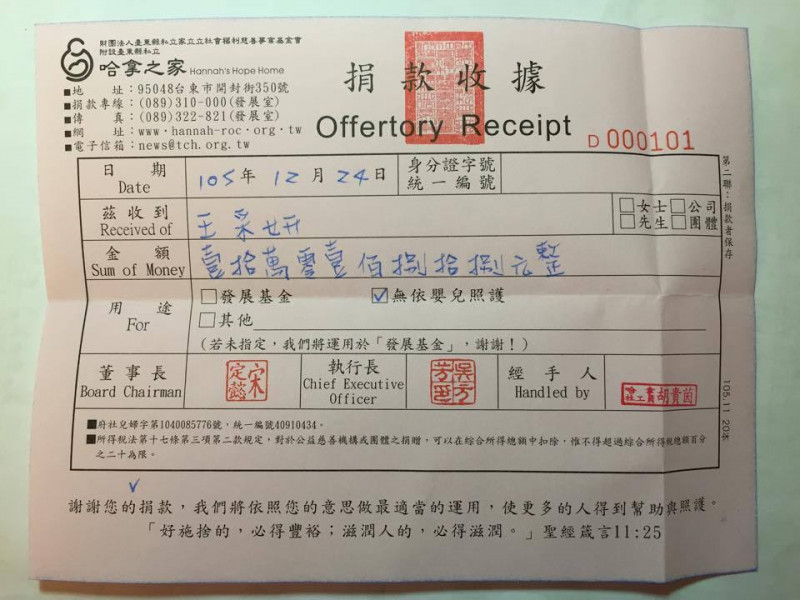 財團法人臺東縣私立家立立社會福利慈善事業基金會
附設臺東縣私立
哈拿之家 Hannah's Hope Home
■地 址：95048台東市開封街350號
■捐款專線：(089)310-000(發展室)
■傳 真：(089)322-821(發展室)
■網 址：www.hannah-roc.org.tw
■電子信箱：news@tch.org.tw
捐款收據
Offertory Receipt
D 000101
日期 Date 105年 12月 24日 身分證字號 統一編號
茲收到 Received of 王采妍 □女士□公司 □先生□團體
金額 Sum of Money 壹拾萬零壹佰捌拾捌元整
用途 For □發展基金 ☑無依嬰兒照護
□其他
(若未指定，我們將運用於「發展基金」，謝謝！)
董事長 Board Chairman 宋定懿 執行長 Chief Executive Officer 吳方芳印 經手人 Handled by
■府社兒婦字第1040085776號，統一編號40910434。
■所得稅法第十七條第三項第二款規定，對於公益慈善機構或團體之捐贈，可以在綜合所得總額中扣除，惟不得超過綜合所得稅總額百分
之二十為限。
謝謝您的捐款，我們將依照您的意思做最適當的運用，使更多的人得到幫助與照護。
「好施捨的，必得豐裕；滋潤人的，必得滋潤。」聖經箴言11:25
第二聯：捐款者保存
105.11 20本